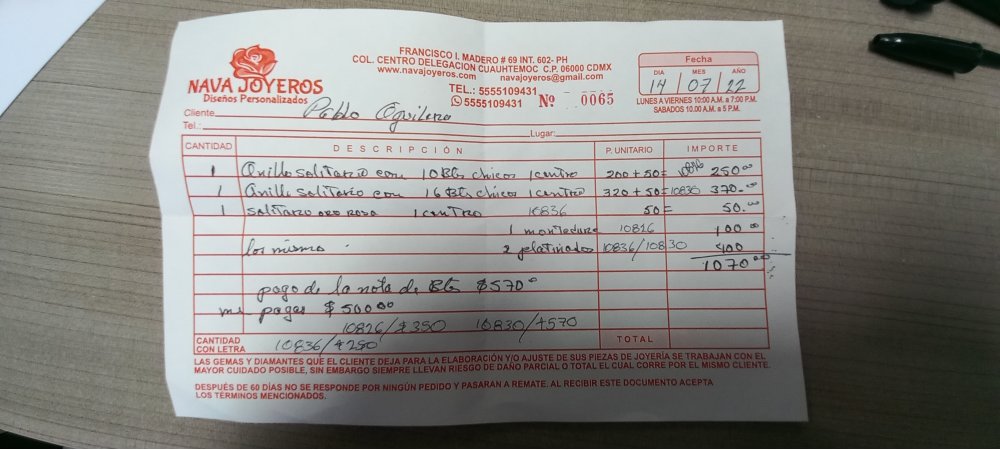 NAVA JOYEROS
Diseños Personalizados
FRANCISCO I. MADERO # 69 INT. 602- PH
COL. CENTRO DELEGACION CUAUHTEMOC C.P. 06000 CDMX
www.navajoyeros.com navajoyeros@gmail.com
TEL.: 5555109431
5555109431 Nº 0065
Fecha
DIA MES AÑO
14 / 07 / 22
LUNES A VIERNES 10:00 A.M. a 7:00 P.M.
SABADOS 10.00 A.M. a 5 P.M.
Cliente Pablo Aguilera
Tel.: Lugar:
CANTIDAD DESCRIPCIÓN P. UNITARIO IMPORTE
1 Anillo solitario con 10 Bts chicos 1 centro 200 + 50 = 10826 250.00
1 Anillo solitario con 16 Bts chicos 1 centro 320 + 50 = 10830 370.00
1 solitario oro rosa 1 centro 10836 50 = 50.00
1 montadura 10826 100.00
los mismo . 2 platinados 10836/10830 400
1070.00
pago de la nota de Bts $570.00
me pagas $500.00
10826/$350 10830/$570
CANTIDAD CON LETRA 10836/$250 TOTAL
LAS GEMAS Y DIAMANTES QUE EL CLIENTE DEJA PARA LA ELABORACIÓN Y/O AJUSTE DE SUS PIEZAS DE JOYERÍA SE TRABAJAN CON EL
MAYOR CUIDADO POSIBLE, SIN EMBARGO SIEMPRE LLEVAN RIESGO DE DAÑO PARCIAL O TOTAL EL CUAL CORRE POR EL MISMO CLIENTE.
DESPUÉS DE 60 DÍAS NO SE RESPONDE POR NINGÚN PEDIDO Y PASARAN A REMATE. AL RECIBIR ESTE DOCUMENTO ACEPTA
LOS TÉRMINOS MENCIONADOS.